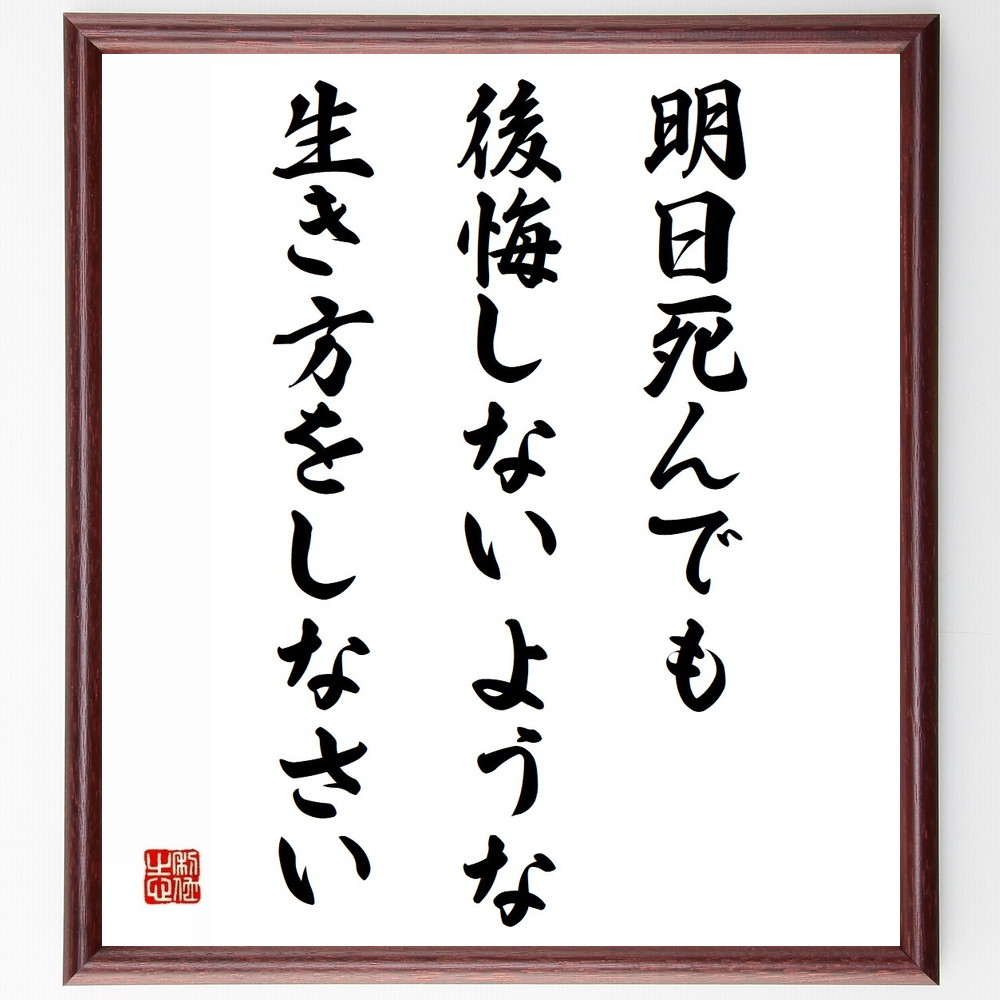 明日死んでも
後悔しないような
生き方をしなさい